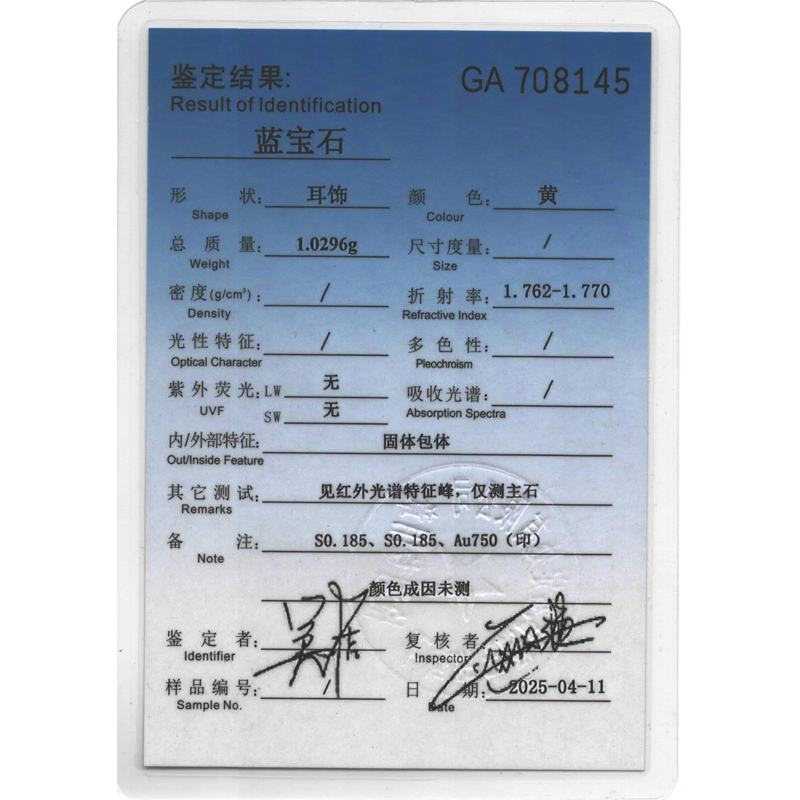 鉴定结果: GA 708145
Result of Identification
蓝宝石
形 状: 耳饰 颜 色: 黄
Shape Colour
总 质 量: 1.0296g 尺寸度量: /
Weight Size
密 度(g/cm³): / 折 射 率: 1.762-1.770
Density Refractive Index
光性特征: / 多 色 性: /
Optical Character Pleochroism
紫外荧光: LW 无 吸收光谱: /
UVF SW 无 Absorption Spectra
内/外部特征: 固体包体
Out/Inside Feature
其它测试: 见红外光谱特征峰, 仅测主石
Remarks
备 注: S0.185、S0.185、Au750（印）
Note
颜色成因未测
鉴 定 者: 复 核 者:
Identifier Inspector
样品编号: / 日 期: 2025-04-11
Sample No. Date